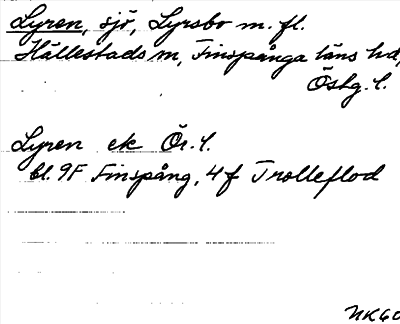 Lyren, sjö, Lyrsbo m. fl.
Hällestads m, Finspånga läns hd,
Östg. l.
Lyren ek Ör. l.
bl. 9F Finspång, 4f Trolleflod
NK60